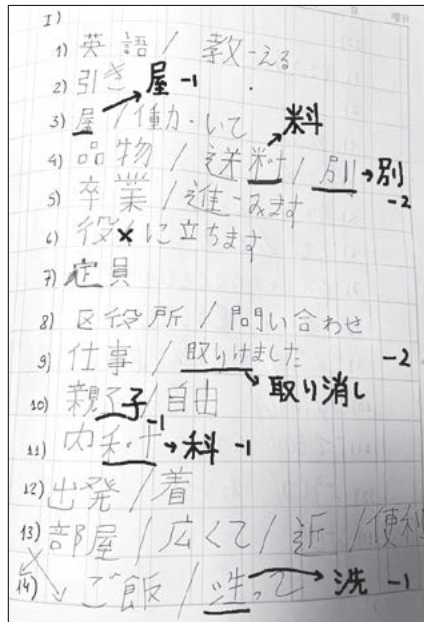 I)
1) 英語 / 教-える
2) 引き
屋 -1
3) 屋 / 働-いて
料
4) 品物 / 送料 / 別 → 別 -2
5) 卒業 / 進-みます
6) 役×に立ちます
7) 定員
8) 区役所 / 問い合わせ
9) 仕事 / 取りけました -2
取り消し
10) 親子 / 自由
-1
11) 内科 → 科 -1
12) 出発 / 着
13) 部屋 / 広くて / 近 / 便利
14) ご飯 / 洗って → 洗 -1